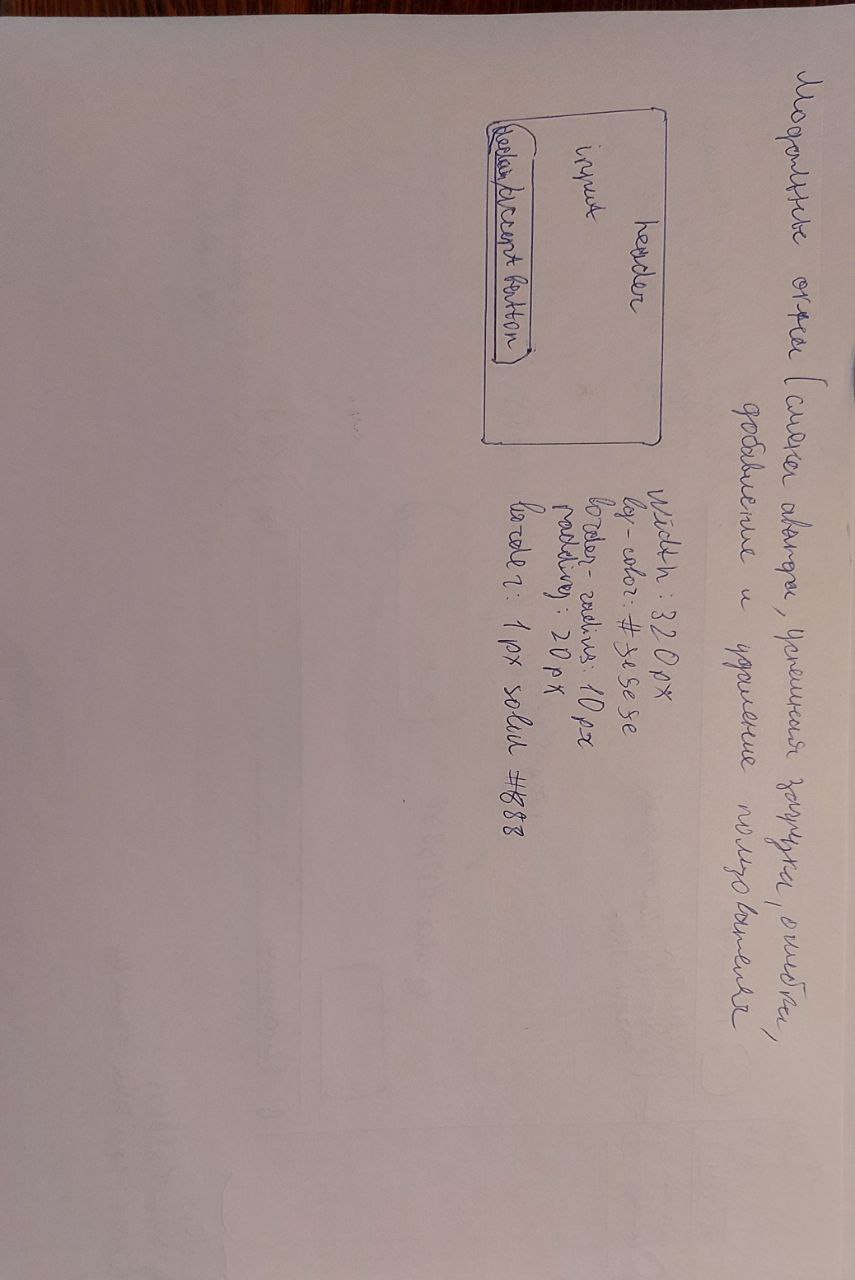 Модальные окна (смена аватара, успешная загрузка, ошибка,
добавление и удаление пользователя
header
input
button
width: 320px
bg-color: #
border-radius: 10px
padding: 20px
border: 1px solid #888